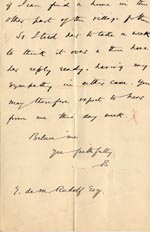 if I can find a home in this
other part of the village for
So I told her to take a week
to think it over & then have
her reply ready, having my
sympathy in either case. You
may therefore expect to hear
from me this day week.
Believe me
Yrs faithfully
E. de M. Rudolf Esq.